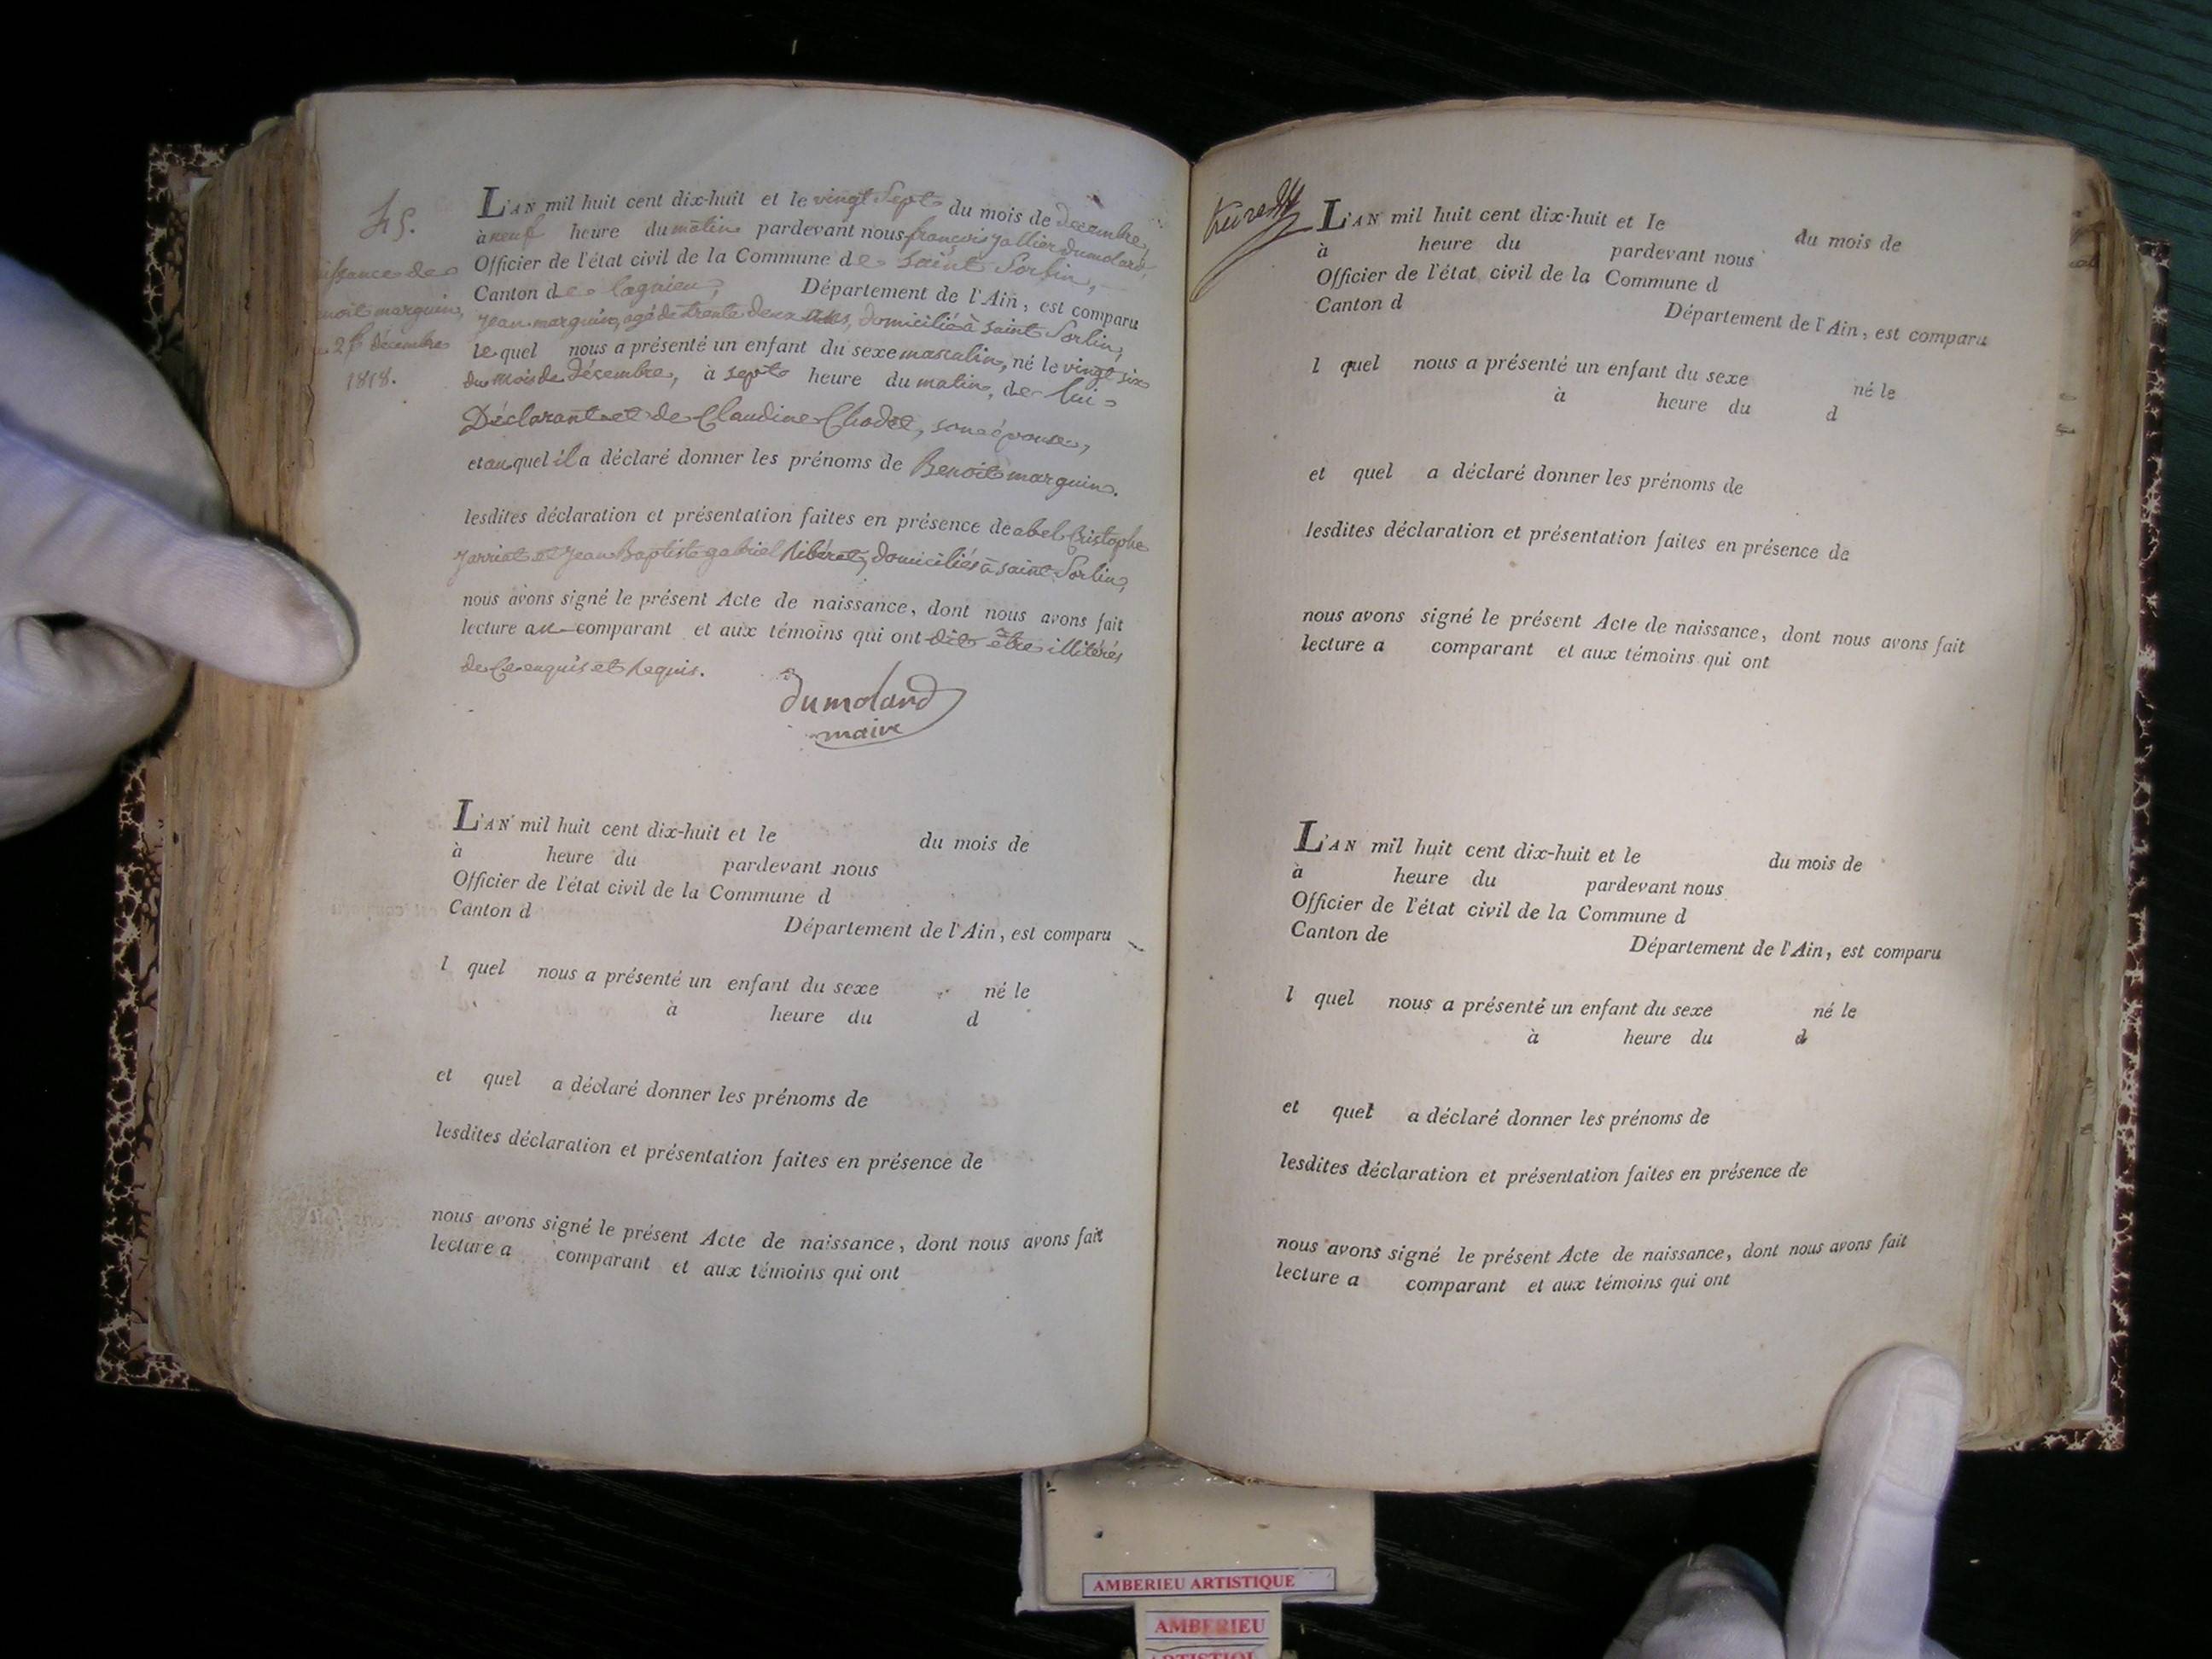 45.
naissance de
Benoit marguin,
27 décembre
1818.
L'AN mil huit cent dix-huit et le vingt Sept du mois de décembre,
à neuf heure du matin pardevant nous françois Jallier dumolard,
Officier de l'état civil de la Commune de Saint Sorlin,
Canton de lagnieu, Département de l'Ain, est comparu
Jean marguin, agé de trente deux ans, domicilié à Saint Sorlin,
lequel nous a présenté un enfant du sexe masculin, né le vingt six
du mois de décembre, à sept heure du matin, de lui
Déclarant et de Claudine Chodet, son épouse,
et auquel il a déclaré donner les prénoms de Benoit marguin.
lesdites déclaration et présentation faites en présence de abel Cristophe
Jarriot et Jean Baptiste gabriel libérat, domiciliés à saint Sorlin,
nous avons signé le présent Acte de naissance, dont nous avons fait
lecture au comparant et aux témoins qui ont dit être illitérés
de Ce enquis et Requis.
dumolard
maire
L'AN mil huit cent dix-huit et le du mois de
à heure du pardevant nous
Officier de l'état civil de la Commune d
Canton d Département de l'Ain, est comparu
l quel nous a présenté un enfant du sexe né le
à heure du d
et quel a déclaré donner les prénoms de
lesdites déclaration et présentation faites en présence de
nous avons signé le présent Acte de naissance, dont nous avons fait
lecture a comparant et aux témoins qui ont
L'AN mil huit cent dix-huit et le du mois de
à heure du pardevant nous
Officier de l'état civil de la Commune d
Canton d Département de l'Ain, est comparu
l quel nous a présenté un enfant du sexe né le
à heure du d
et quel a déclaré donner les prénoms de
lesdites déclaration et présentation faites en présence de
nous avons signé le présent Acte de naissance, dont nous avons fait
lecture a comparant et aux témoins qui ont
L'AN mil huit cent dix-huit et le du mois de
à heure du pardevant nous
Officier de l'état civil de la Commune d
Canton de Département de l'Ain, est comparu
l quel nous a présenté un enfant du sexe né le
à heure du d
et quel a déclaré donner les prénoms de
lesdites déclaration et présentation faites en présence de
nous avons signé le présent Acte de naissance, dont nous avons fait
lecture a comparant et aux témoins qui ont
AMBERIEU ARTISTIQUE
AMBERIEU
ARTISTIQUE